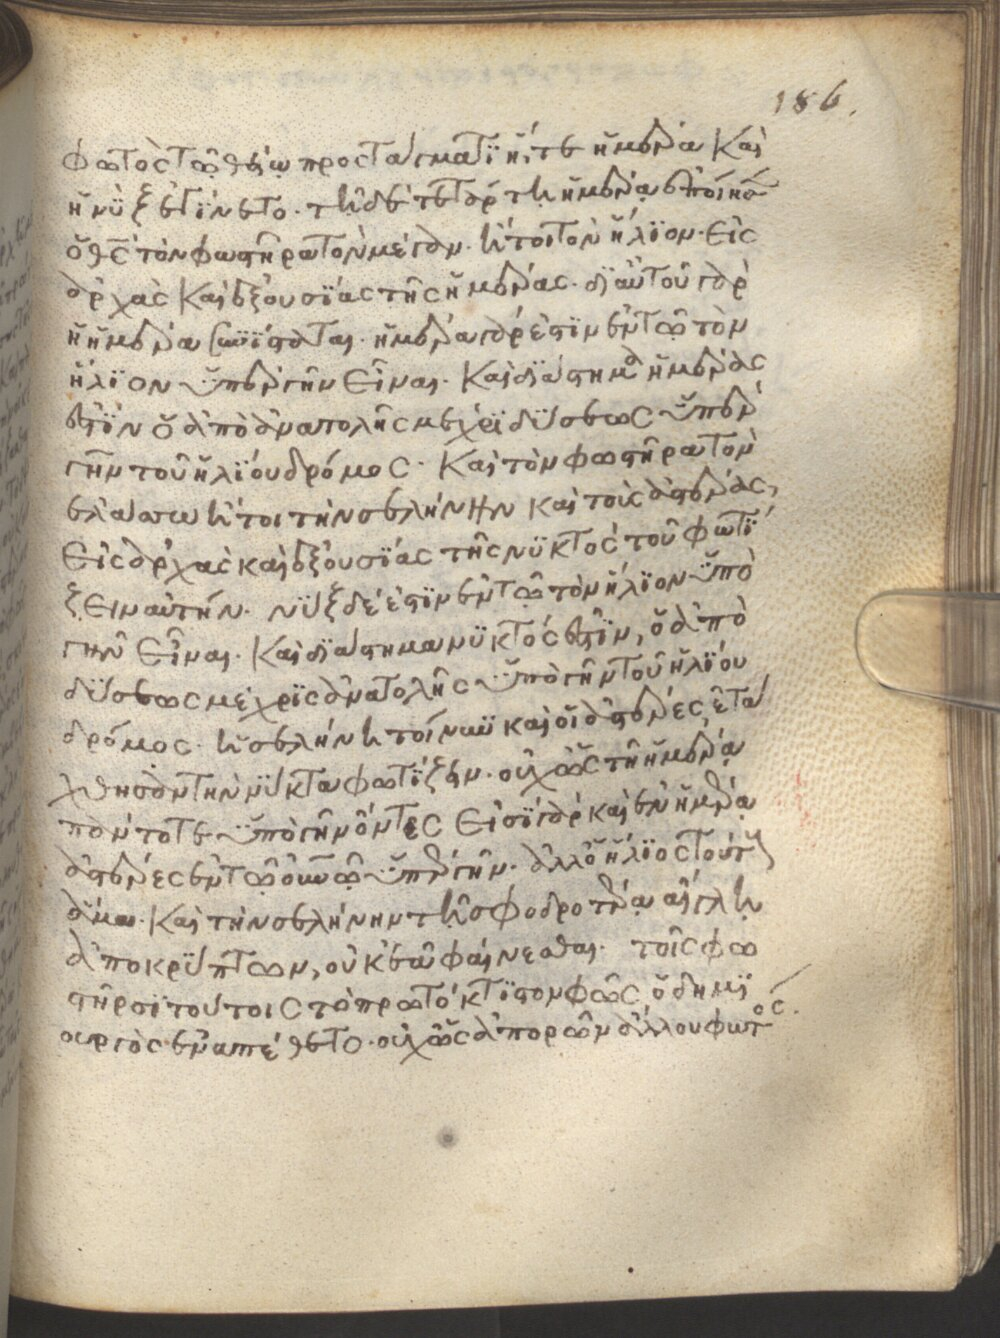 186.
φωτὸς τῷ θείῳ προστάγματι ἥ, τε ἡμέρα καὶ
ἡ νὺξ ἐγίνετο. τῇ δὲ τετάρτῃ ἡμέρᾳ ἐποίησεν
ὁ θς τὸν φωστῆρα τὸν μέγαν. ἤτοι τὸν ἥλιον. εἰς
ἀρχὰς καὶ ἐξουσίας τῆς ἡμέρας. δι αὐτοῦ γὰρ
ἡ ἡμέρα συνίσταται. ἡμέρα γάρ ἐστιν ἐν τῷ τὸν
ἥλιον ὑπὲρ γῆν εἶναι. καὶ διάστημα ἡμέρας
ἐστὶν ὁ ἀπὸ ἀνατολῆς μέχρι δύσεως ὑπὲρ
γῆν τοῦ ἡλίου δρόμος. καὶ τὸν φωστῆρα τὸν
ἐλάσσω ἤτοι τὴν σελήνην καὶ τοὺς ἀστέρας,
εἰς ἀρχὰς καὶ ἐξουσίας τῆς νυκτὸς τοῦ φωτί
ζειν αὐτήν. νὺξ δέ ἐστιν ἐν τῷ τὸν ἥλιον ὑπὸ
γῆν εἶναι. καὶ διάστημα νυκτός ἐστιν, ὁ ἀπὸ
δύσεως μέχρις ἀνατολῆς ὑπὸ γῆν τοῦ ἡλίου
δρόμος. ἡ σελήνη τοίνυν καὶ οἱ ἀστέρες ἐτά
χθησαν τὴν νύκτα φωτίζειν. οὐχ ὡς τῇ ἡμέρᾳ
πάντοτε ὑπὸ γῆν ὄντες εἰσὶ γὰρ καὶ ἐν ἡμέρᾳ
ἀστέρες ἐν τῷ οὐνῷ ὑπὲρ γῆν. ἀλλ ὁ ἥλιος τούτους
ἅμα καὶ τὴν σελήνην τῇ σφοδροτέρᾳ αἴγλῃ
ἀποκρύπτων, οὐκ ἐᾷ φαίνεσθαι. τοῖς φω
στῆρσι τούτοις τὸ πρωτόκτιστον φῶς ὁ δημι
ουργὸς ἐναπέθετο. οὐχ ὡς ἀπορῶν ἄλλου φωτός.